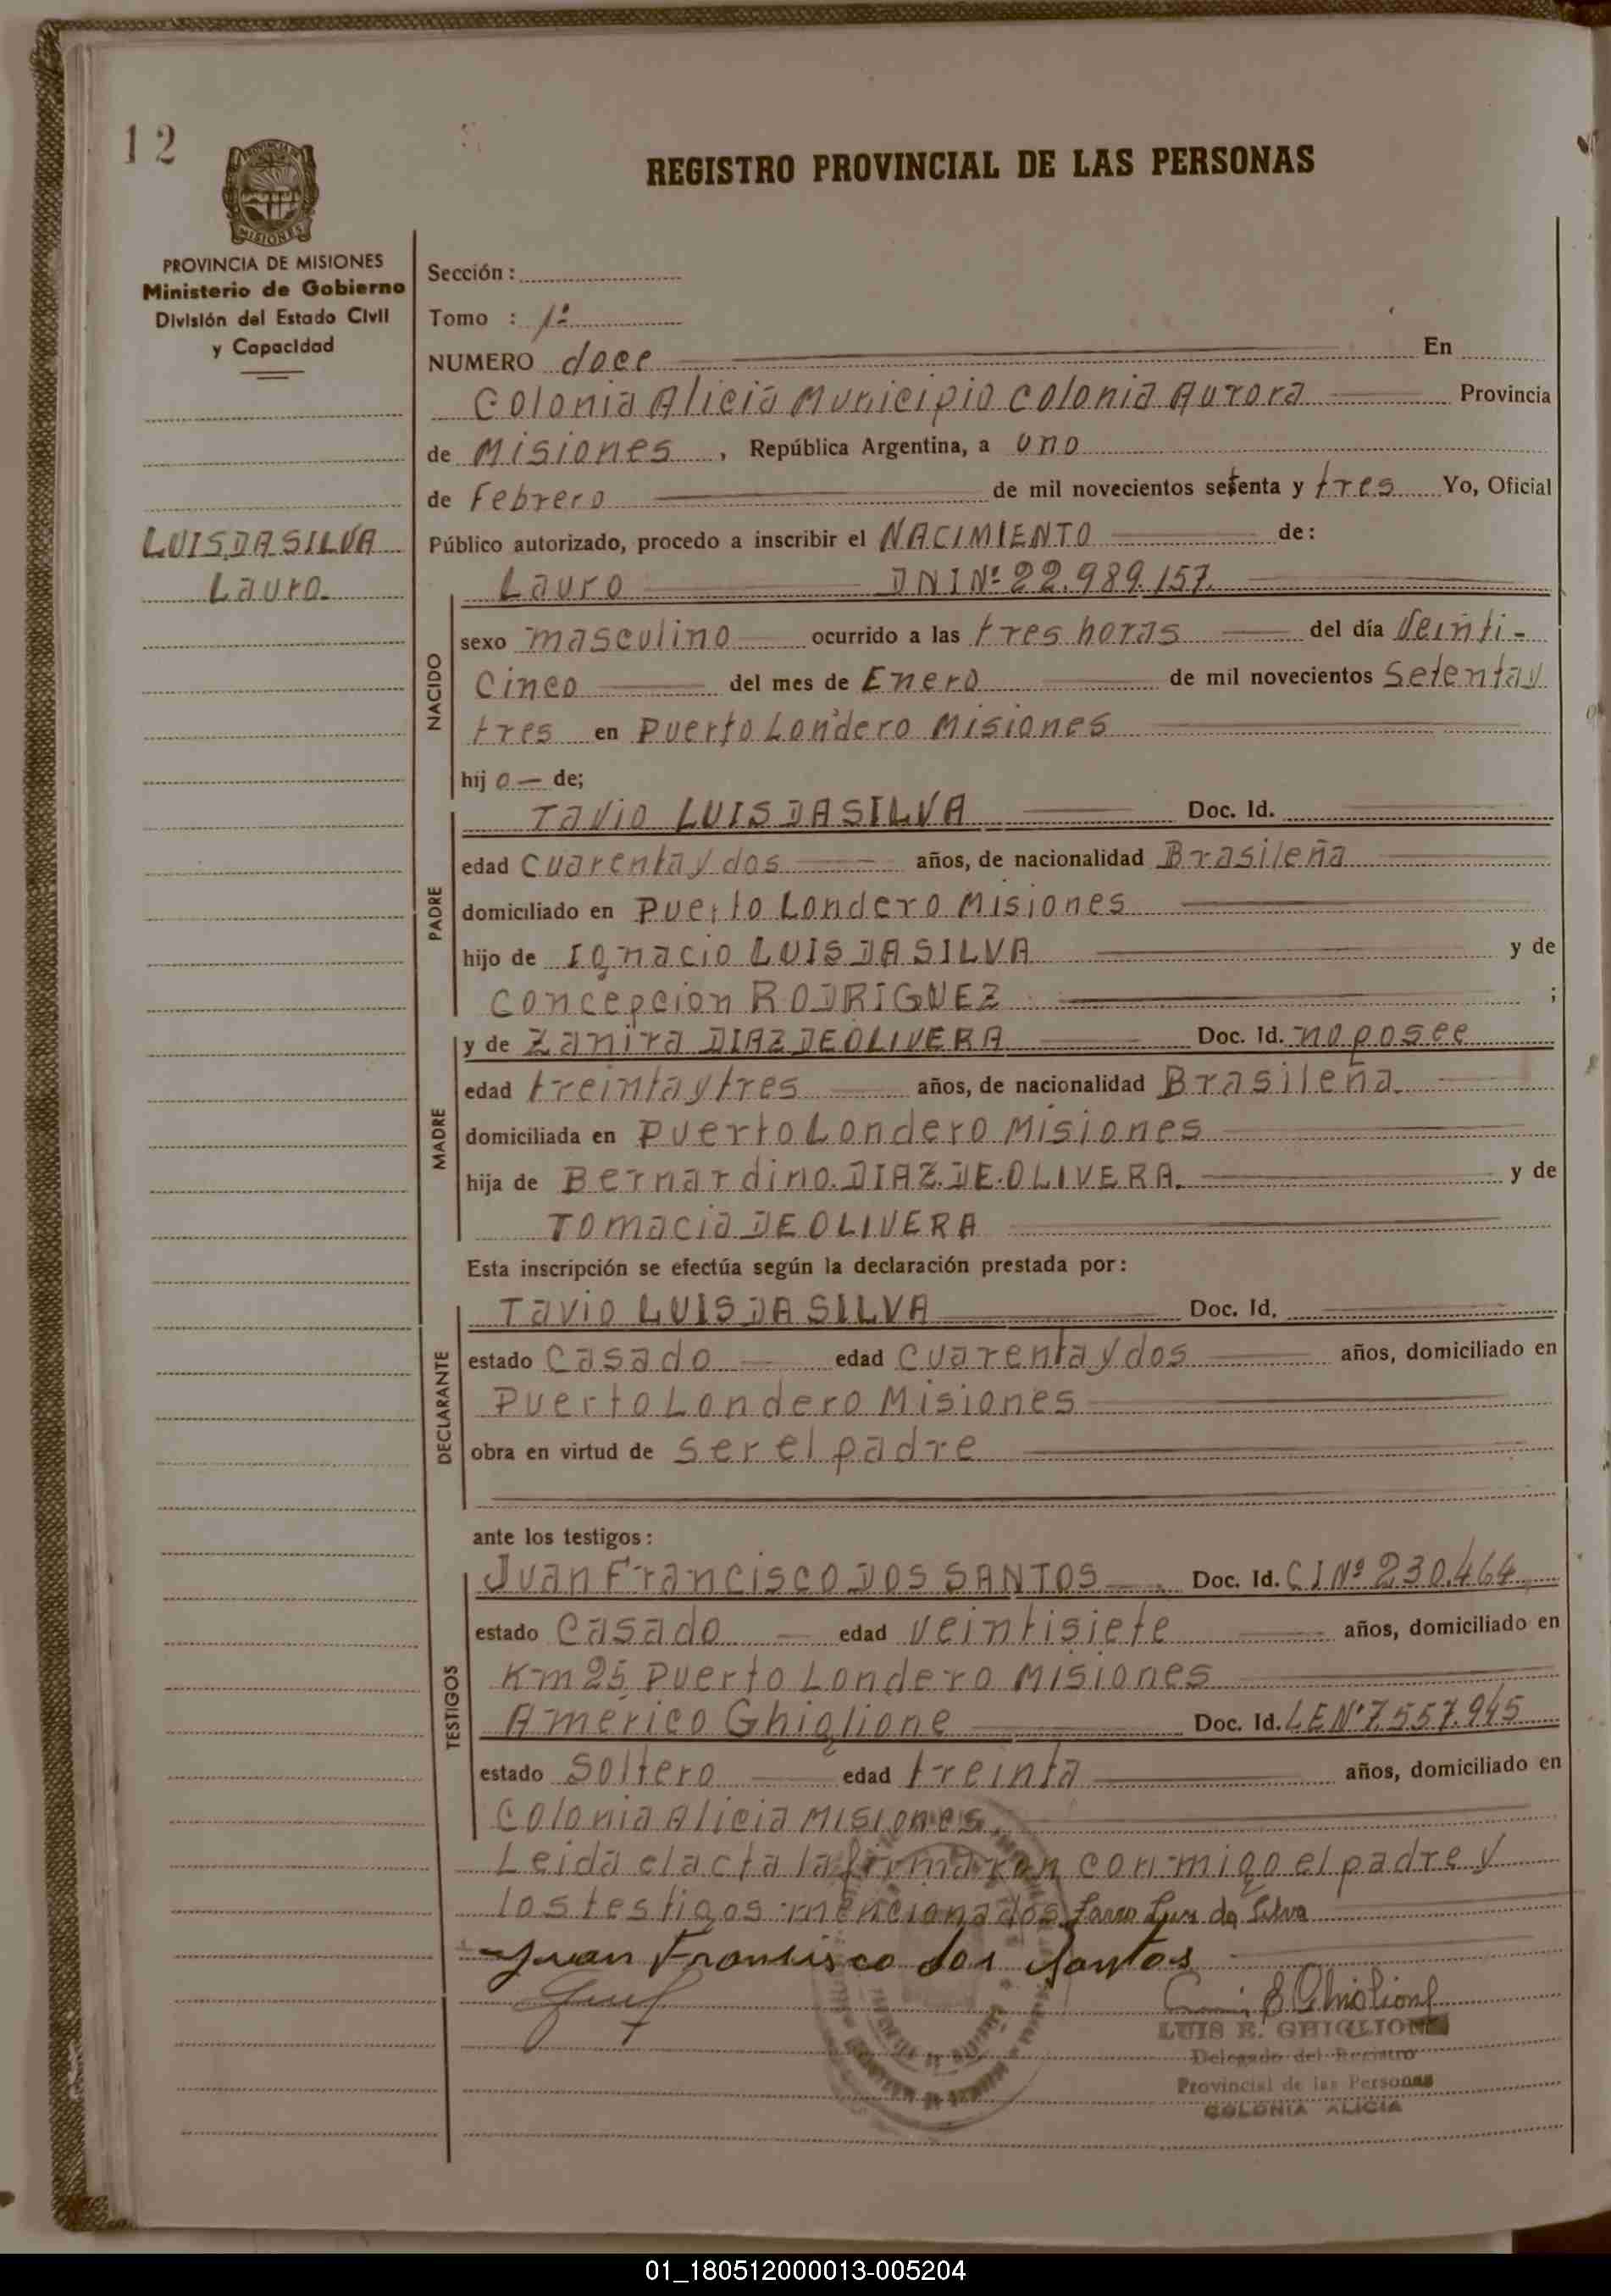 12
REGISTRO PROVINCIAL DE LAS PERSONAS
PROVINCIA DE MISIONES
Ministerio de Gobierno
División del Estado Civil
y Capacidad
LUIS DA SILVA
Lauro.
Sección :
Tomo : 1º
NUMERO doce En
Colonia Alicia Municipio Colonia Aurora Provincia
de Misiones , República Argentina, a uno
de Febrero de mil novecientos setenta y tres Yo, Oficial
Público autorizado, procedo a inscribir el NACIMIENTO de:
Lauro DNI Nº 22.989.157.
NACIDO
sexo masculino ocurrido a las tres horas del día Veinti-
cinco del mes de Enero de mil novecientos Setenta y
tres en Puerto Londero Misiones
hij o de;
PADRE
Tavio LUIS DA SILVA Doc. Id.
edad cuarenta y dos años, de nacionalidad Brasileña
domiciliado en Puerto Londero Misiones
hijo de Ignacio LUIS DA SILVA y de
Concepcion RODRIGUEZ ;
MADRE
y de Zanira DIAZ DE OLIVERA Doc. Id. no posee
edad treinta y tres años, de nacionalidad Brasileña.
domiciliada en Puerto Londero Misiones
hija de Bernardino DIAZ DE OLIVERA. y de
Tomacia DE OLIVERA
Esta inscripción se efectúa según la declaración prestada por:
DECLARANTE
Tavio LUIS DA SILVA Doc. Id.
estado Casado edad cuarenta y dos años, domiciliado en
Puerto Londero Misiones
obra en virtud de ser el padre
ante los testigos:
TESTIGOS
Juan Francisco DOS SANTOS Doc. Id. CI Nº 230.464
estado Casado edad veintisiete años, domiciliado en
Km 25 Puerto Londero Misiones
Americo Ghiglione Doc. Id. LE Nº 7.557.945
estado Soltero edad treinta años, domiciliado en
Colonia Alicia Misiones.
Leida el acta la firmaron con migo el padre y
los testigos mencionados Luis da Silva
Juan Fransisco dos Santos
LUIS E. GHIGLIONE
Delegado del Registro
Provincial de las Personas
COLONIA ALICIA
01_180512000013-005204